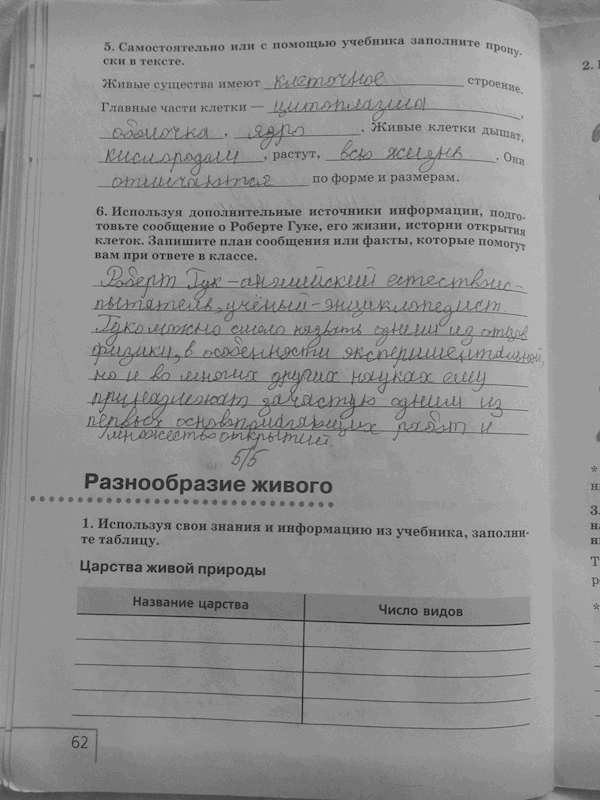 5. Самостоятельно или с помощью учебника заполните пропу-
ски в тексте.
Живые существа имеют клеточное строение.
Главные части клетки — цитоплазма,
оболочка, ядро. Живые клетки дышат,
кислородом, растут, всю жизнь. Они
отличаются по форме и размерам.
6. Используя дополнительные источники информации, подго-
товьте сообщение о Роберте Гуке, его жизни, истории открытия
клеток. Запишите план сообщения или факты, которые помогут
вам при ответе в классе.
Роберт Гук - английский естествоис-
пытатель, учёный - энциклопедист.
Гука можно смело назвать одним из отцов
физики, в особенности экспериментальной,
но и во многих других науках ему
принадлежат зачастую одним из
первых основополагающих работ и
множество открытий.
5/5
Разнообразие живого
1. Используя свои знания и информацию из учебника, заполни-
те таблицу.
Царства живой природы
Название царства Число видов
62
2.
*
3.
*